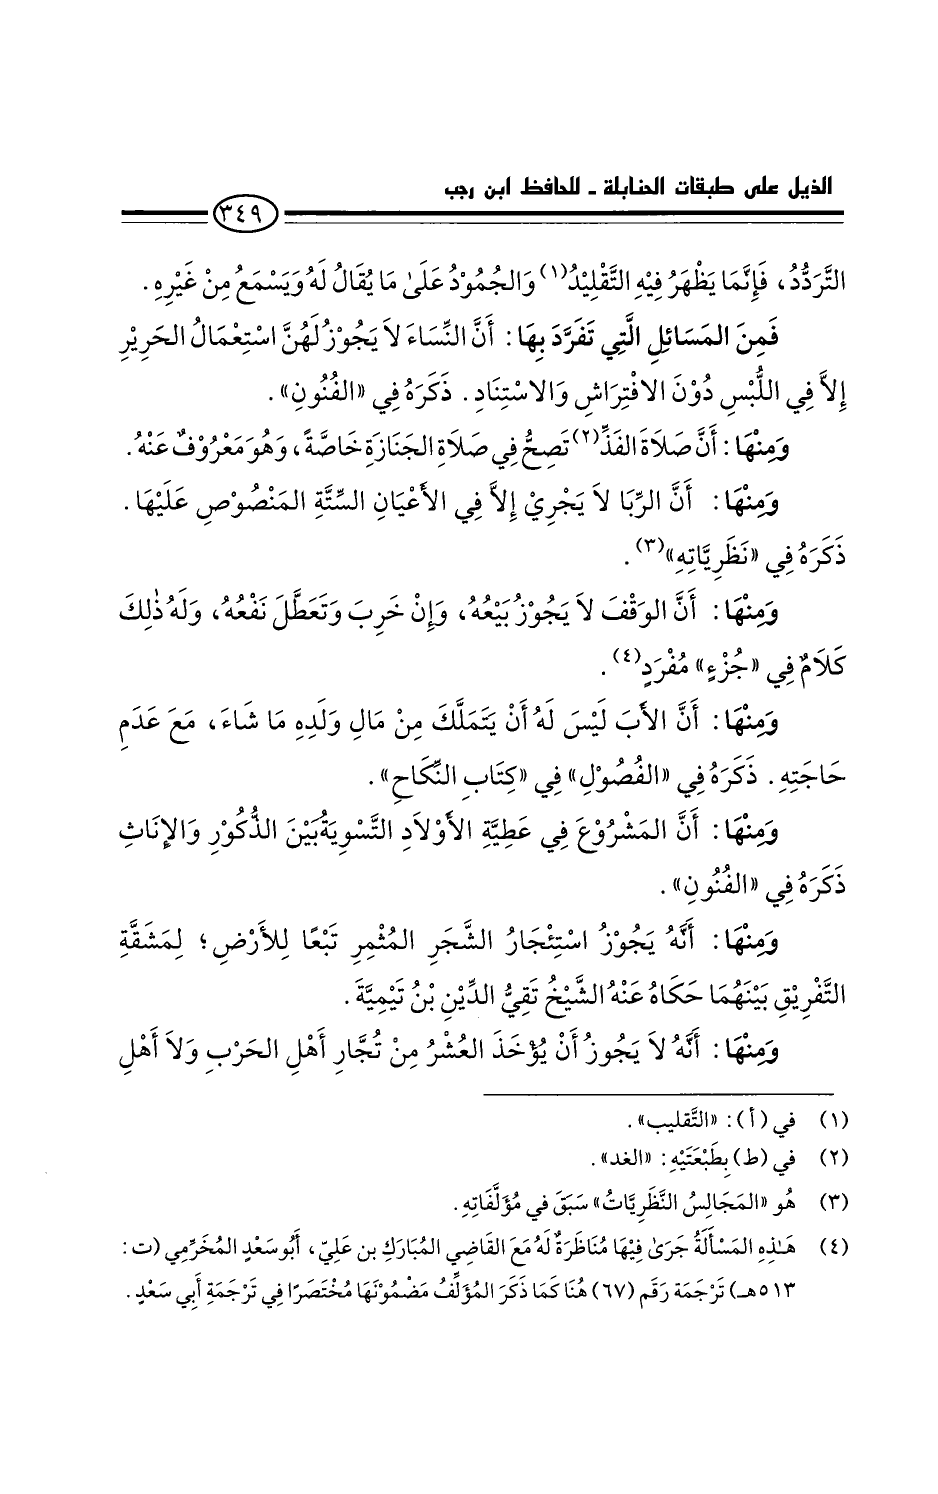 الذيل على طبقات الحنابلة ـ للحافظ ابن رجب
٣٤٩
التَّرَدُّدُ، فَإِنَّمَا يَظْهَرُ فِيْهِ التَّقْلِيْدُ(١) وَالجُمُوْدُ عَلَىٰ مَا يُقَالُ لَهُ وَيَسْمَعُ مِنْ غَيْرِهِ.
فَمِنَ المَسَائِلِ الَّتِي تَفَرَّدَ بِهَا: أَنَّ النِّسَاءَ لاَ يَجُوْزُ لَهُنَّ اسْتِعْمَالُ الحَرِيْرِ
إِلاَّ فِي اللُّبْسِ دُوْنَ الافْتِرَاشِ وَالاسْتِنَادِ. ذَكَرَهُ فِي «الفُنُونِ».
وَمِنْهَا: أَنَّ صَلاَةَ الفَذِّ(٢) تَصِحُّ فِي صَلاَةِ الجَنَازَةِ خَاصَّةً، وَهُوَ مَعْرُوْفٌ عَنْهُ.
وَمِنْهَا: أَنَّ الرِّبَا لاَ يَجْرِيْ إِلاَّ فِي الأَعْيَانِ السِّتَّةِ المَنْصُوْصِ عَلَيْهَا.
ذَكَرَهُ فِي «نَظَرِيَّاتِهِ»(٣).
وَمِنْهَا: أَنَّ الوَقْفَ لاَ يَجُوْزُ بَيْعُهُ، وَإِنْ خَرِبَ وَتَعَطَّلَ نَفْعُهُ، وَلَهُ ذٰلِكَ
كَلاَمٌ فِي «جُزْءٍ» مُفْرَدٍ(٤).
وَمِنْهَا: أَنَّ الأَبَ لَيْسَ لَهُ أَنْ يَتَمَلَّكَ مِنْ مَالِ وَلَدِهِ مَا شَاءَ، مَعَ عَدَمِ
حَاجَتِهِ. ذَكَرَهُ فِي «الفُصُوْلِ» فِي «كِتَابِ النِّكَاحِ».
وَمِنْهَا: أَنَّ المَشْرُوْعَ فِي عَطِيَّةِ الأَوْلاَدِ التَّسْوِيَةُ بَيْنَ الذُّكُوْرِ وَالإِنَاثِ
ذَكَرَهُ فِي «الفُنُونِ».
وَمِنْهَا: أَنَّهُ يَجُوْزُ اسْتِئْجَارُ الشَّجَرِ المُثْمِرِ تَبْعًا لِلأَرْضِ؛ لِمَشَقَّةِ
التَّفْرِيْقِ بَيْنَهُمَا حَكَاهُ عَنْهُ الشَّيْخُ تَقِيُّ الدِّيْنِ بْنُ تَيْمِيَّةَ.
وَمِنْهَا: أَنَّهُ لاَ يَجُوزُ أَنْ يُؤْخَذَ العُشْرُ مِنْ تُجَّارِ أَهْلِ الحَرْبِ وَلاَ أَهْلِ
(١) في (أ): «التَّقليب».
(٢) في (ط) بِطَبْعَتَيْهِ: «الغد».
(٣) هُو «المَجَالِسُ النَّظَرِيَّاتُ» سَبَقَ في مُؤَلَّفَاتِهِ.
(٤) هَـٰذِهِ المَسْأَلَةُ جَرَىٰ فِيْهَا مُنَاظَرَةٌ لَهُ مَعَ القَاضِي المُبَارَكِ بن عَلِيٍّ، أَبُو سَعْدٍ المُخَرِّمِي (ت:
٥١٣هـ) تَرْجَمَة رَقَم (٦٧) هُنَا كَمَا ذَكَرَ المُؤَلِّفُ مَضْمُوْنَهَا مُخْتَصَرًا فِي تَرْجَمَةِ أَبِي سَعْدٍ.